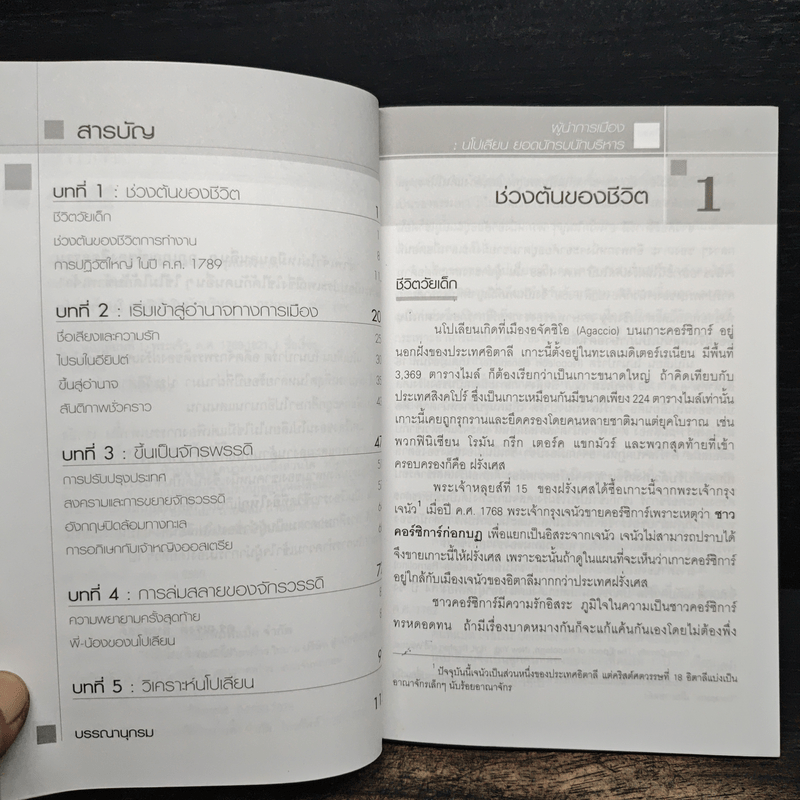 สารบัญ
บทที่ 1 : ช่วงต้นของชีวิต 1
ชีวิตวัยเด็ก
ช่วงต้นของชีวิตการทำงาน
การปฏิวัติใหญ่ ในปี ค.ศ. 1789
บทที่ 2 : เริ่มเข้าสู่อำนาจทางการเมือง 20
ชื่อเสียงและความรัก
ไปรบในอียิปต์
ขึ้นสู่อำนาจ
สันติภาพชั่วคราว
บทที่ 3 : ขึ้นเป็นจักรพรรดิ
การปรับปรุงประเทศ
สงครามและการขยายจักรวรรดิ
อังกฤษปิดล้อมทางทะเล
การอภิเษกกับเจ้าหญิงออสเตรีย
บทที่ 4 : การล่มสลายของจักรวรรดิ
ความพยายามครั้งสุดท้าย
พี่-น้องของนโปเลียน
บทที่ 5 : วิเคราะห์นโปเลียน
บรรณานุกรม
ผู้นำการเมือง
: นโปเลียน ยอดนักรบนักบริหาร
ช่วงต้นของชีวิต 1
ชีวิตวัยเด็ก
นโปเลียนเกิดที่เมืองอจัคซิโอ (Agaccio) บนเกาะคอร์ซิการ์ อยู่
นอกฝั่งของประเทศอิตาลี เกาะนี้ตั้งอยู่ในทะเลเมดิเตอร์เรเนียน มีพื้นที่
3,369 ตารางไมล์ ก็ต้องเรียกว่าเป็นเกาะขนาดใหญ่ ถ้าคิดเทียบกับ
ประเทศสิงคโปร์ ซึ่งเป็นเกาะเหมือนกันมีขนาดเพียง 224 ตารางไมล์เท่านั้น
เกาะนี้เคยถูกรุกรานและยึดครองโดยคนหลายชาติมาแต่ยุคโบราณ เช่น
พวกฟินิเชียน โรมัน กรีก เตอร์ค แขกมัวร์ และพวกสุดท้ายที่เข้า
ครอบครองก็คือ ฝรั่งเศส
พระเจ้าหลุยส์ที่ 15 ของฝรั่งเศสได้ซื้อเกาะนี้จากพระเจ้ากรุง
เจนัว1 เมื่อปี ค.ศ. 1768 พระเจ้ากรุงเจนัวขายคอร์ซิการ์เพราะเหตุว่า ชาว
คอร์ซิการ์ก่อกบฏ เพื่อแยกเป็นอิสระจากเจนัว เจนัวไม่สามารถปราบได้
จึงขายเกาะนี้ให้ฝรั่งเศส เพราะฉะนั้นถ้าดูในแผนที่จะเห็นว่าเกาะคอร์ซิการ์
อยู่ใกล้กับเมืองเจนัวของอิตาลีมากกว่าประเทศฝรั่งเศส
ชาวคอร์ซิการ์มีความรักอิสระ ภูมิใจในความเป็นชาวคอร์ซิการ์
ทรหดอดทน ถ้ามีเรื่องบาดหมางกันก็จะแก้แค้นกันเองโดยไม่ต้องพึ่ง
1 ปัจจุบันนี้เจนัวเป็นส่วนหนึ่งของประเทศอิตาลี แต่คริสต์ศตวรรษที่ 18 อิตาลีแบ่งเป็น
อาณาจักรเล็กๆ นับร้อยอาณาจักร